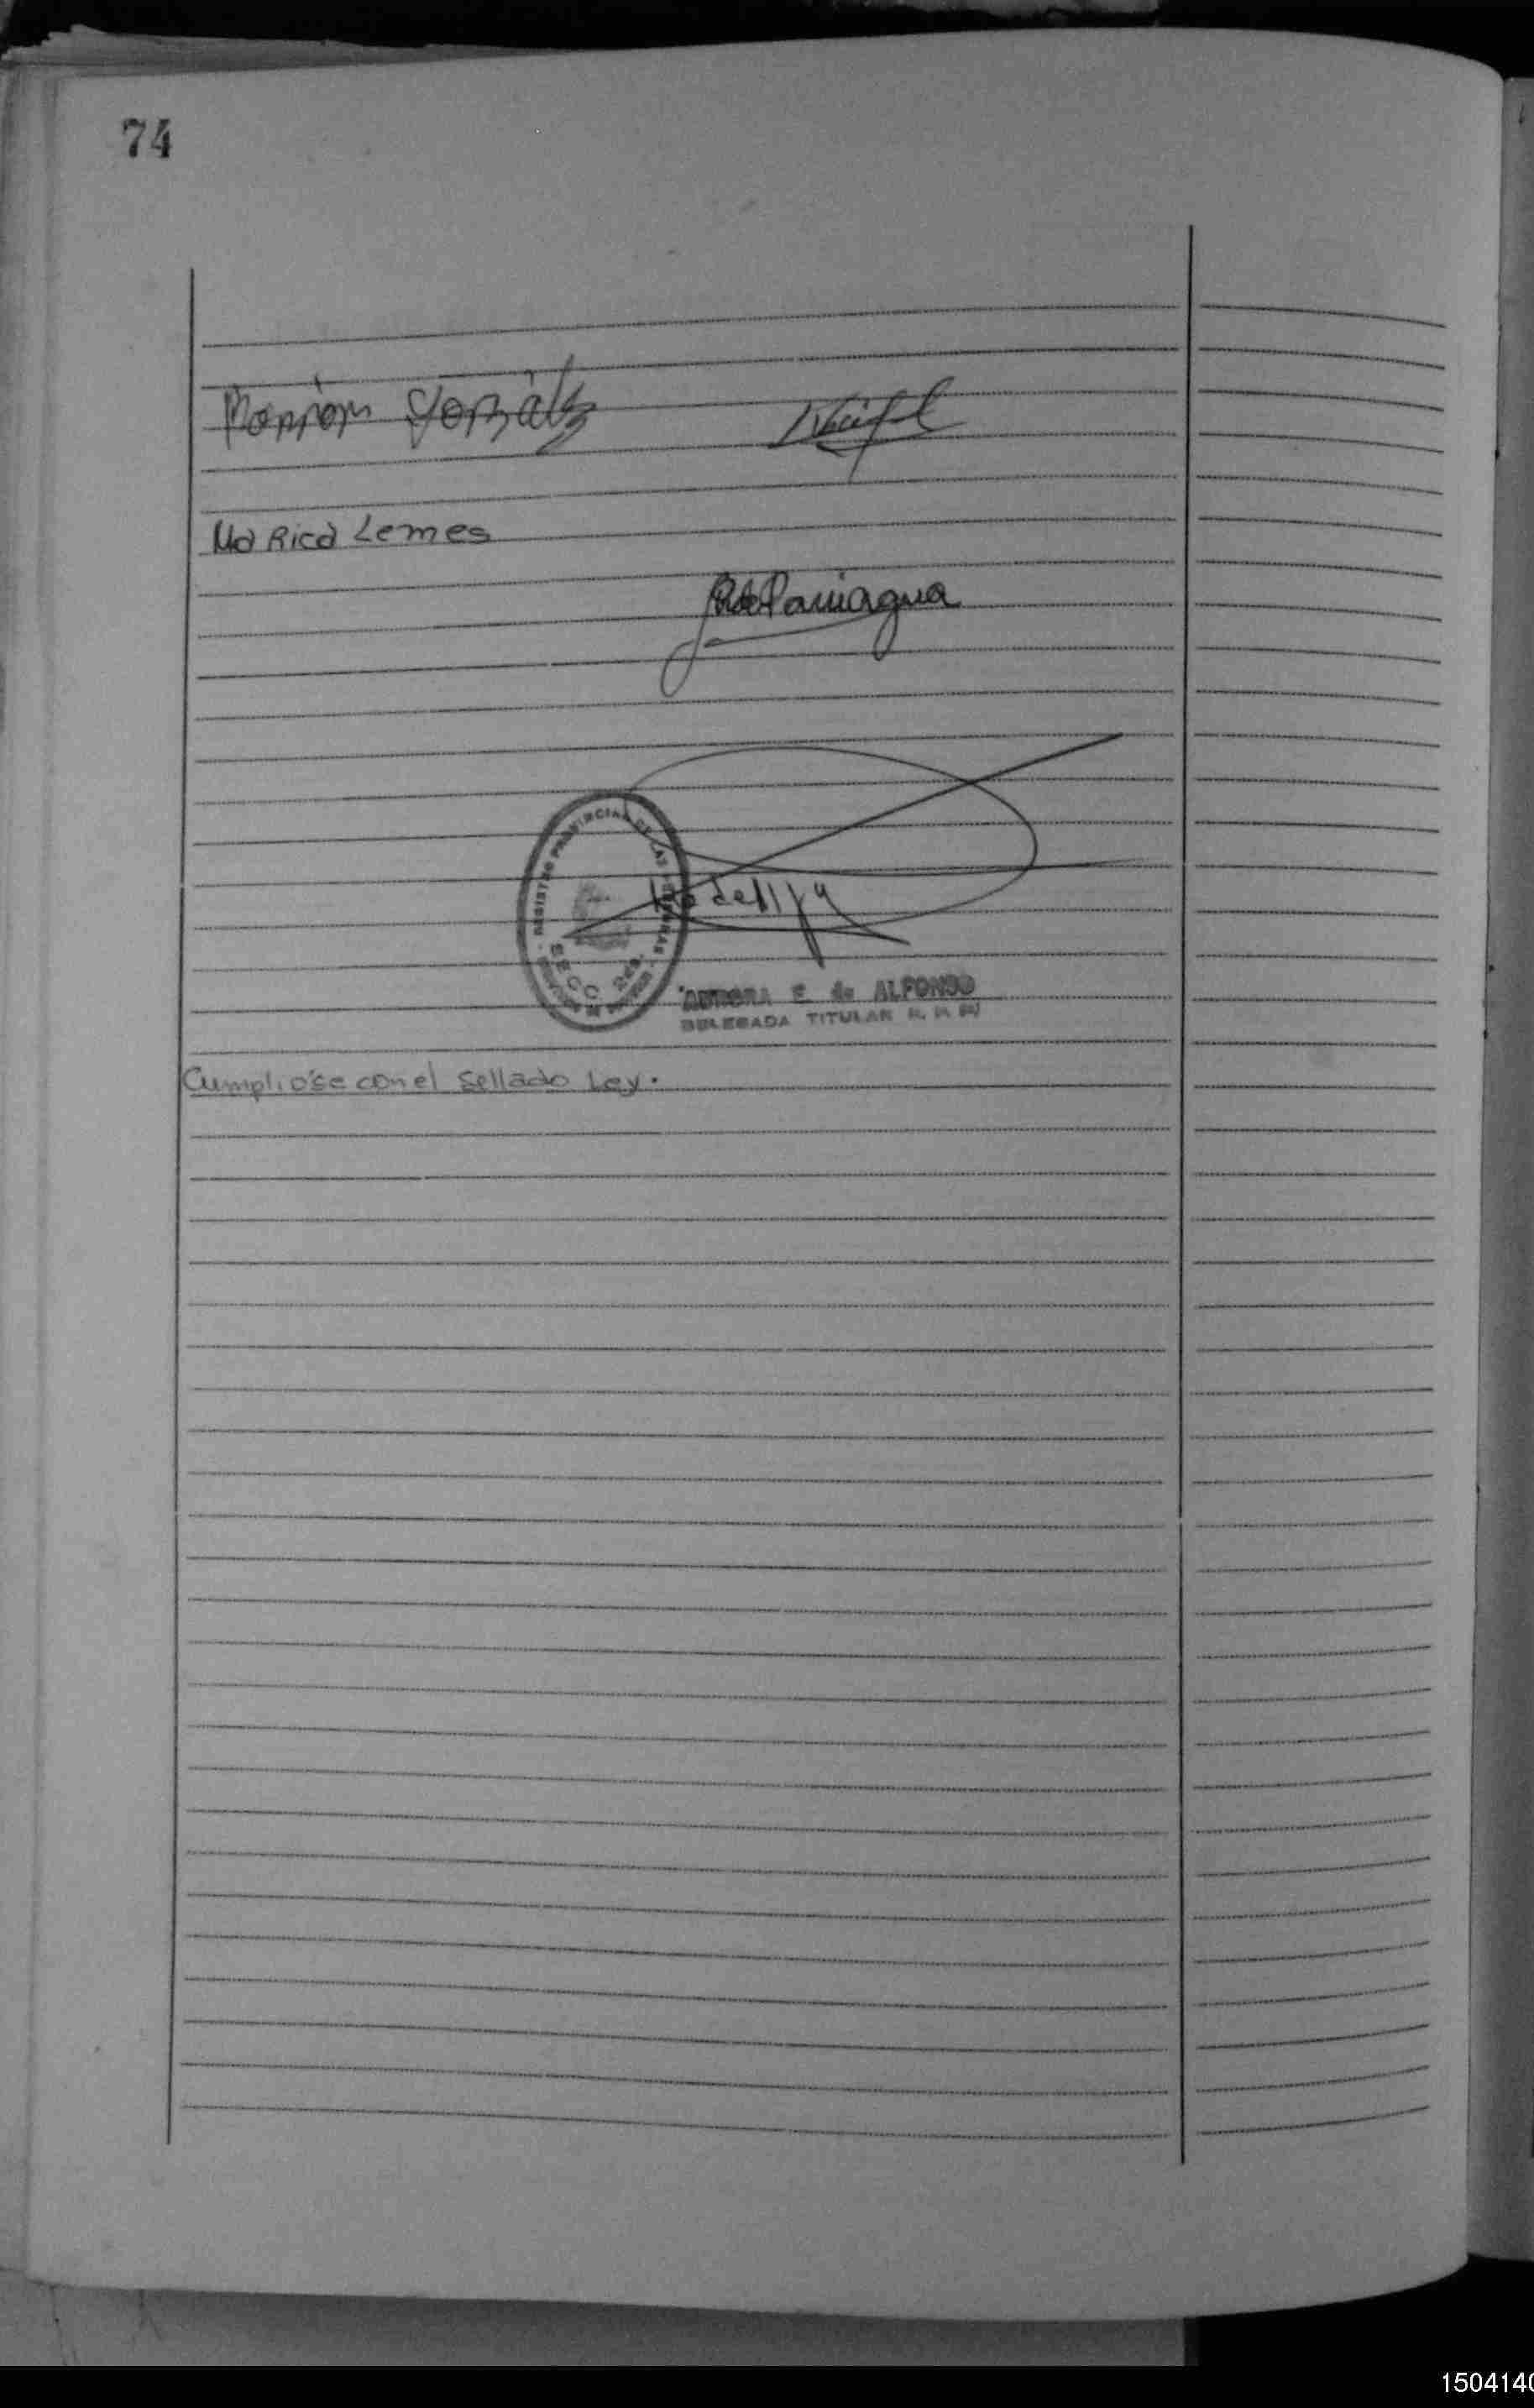 74
González
Ma Rica Lemes
Paniagua
REGISTRO PROVINCIAL DE LAS PERSONAS
SECC 2da.
AURORA E de ALFONSO
DELEGADA TITULAR R. P. P.
Cumplióse con el Sellado Ley.
1504140